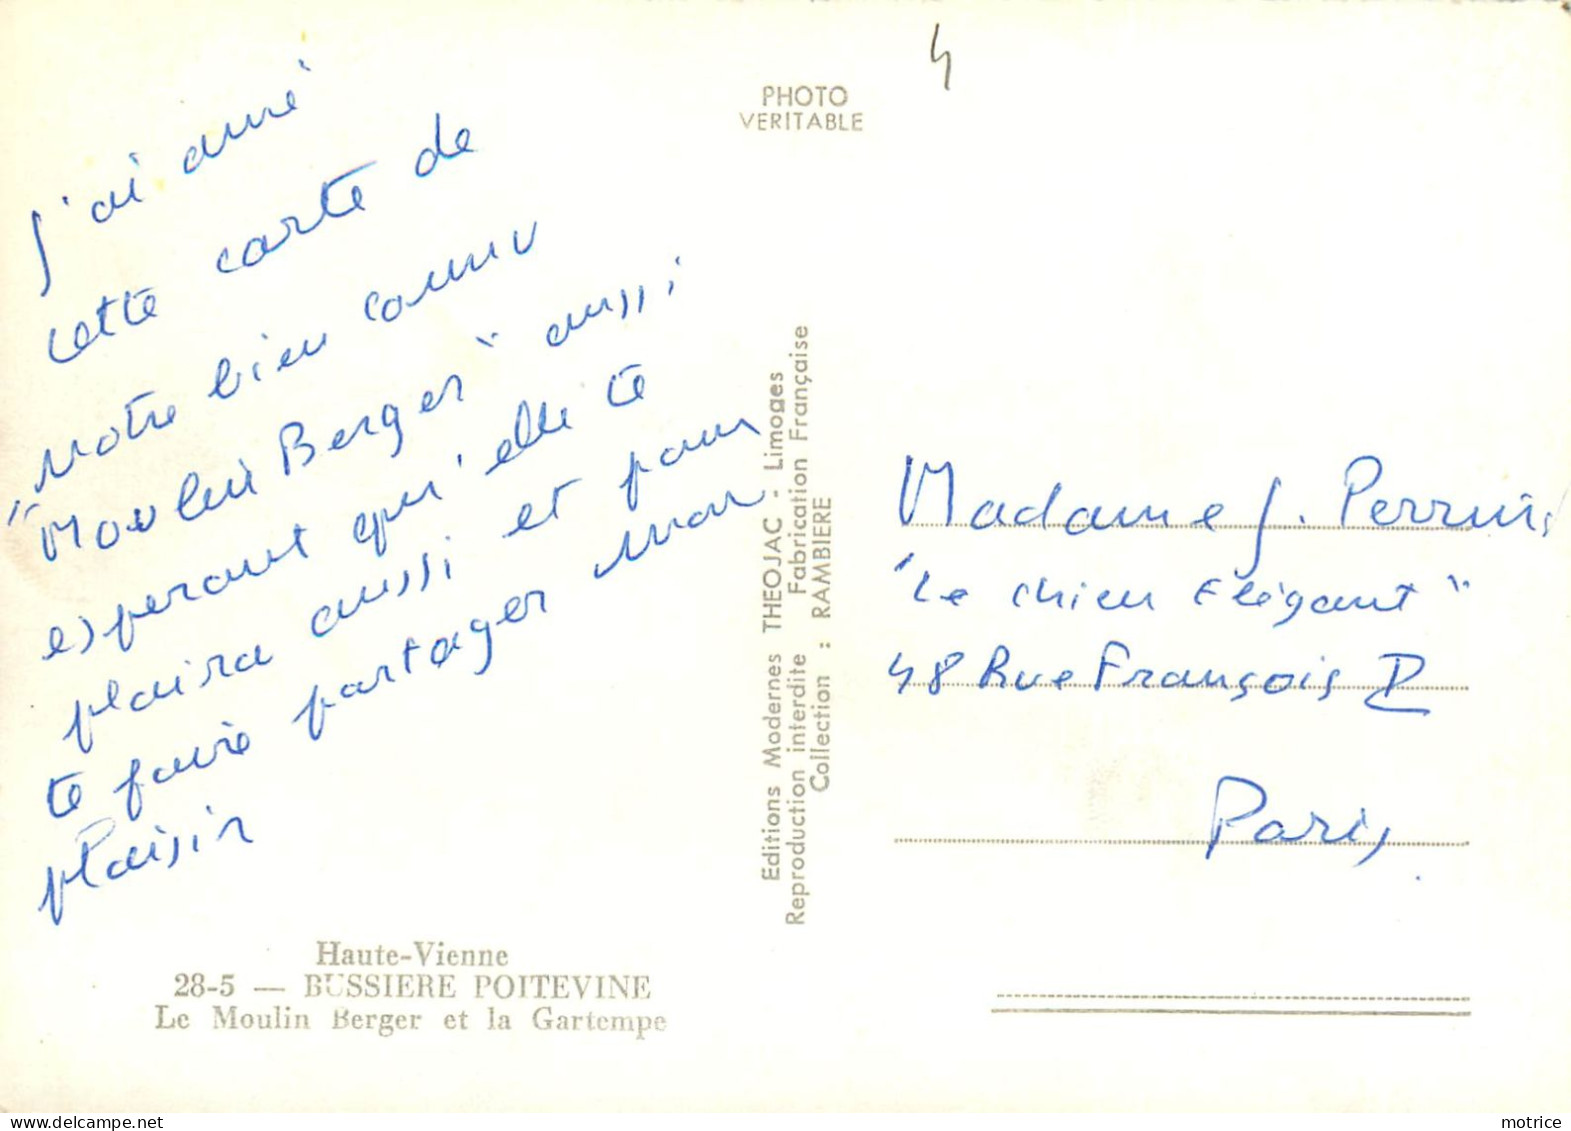 J'ai aimé
cette carte de
notre bien connu
"Moulin Berger" aussi
esperant qu'elle te
plaira aussi et pour
te faire partager mon
plaisir
Haute-Vienne
28-5 — BUSSIERE POITEVINE
Le Moulin Berger et la Gartempe
PHOTO
VERITABLE
4
Editions Modernes THEOJAC - Limoges
Reproduction interdite Fabrication Française
Collection : RAMBIERE
Madame J. Perrin,
"Le chien Elégant"
48 Rue François
Paris,
motrice